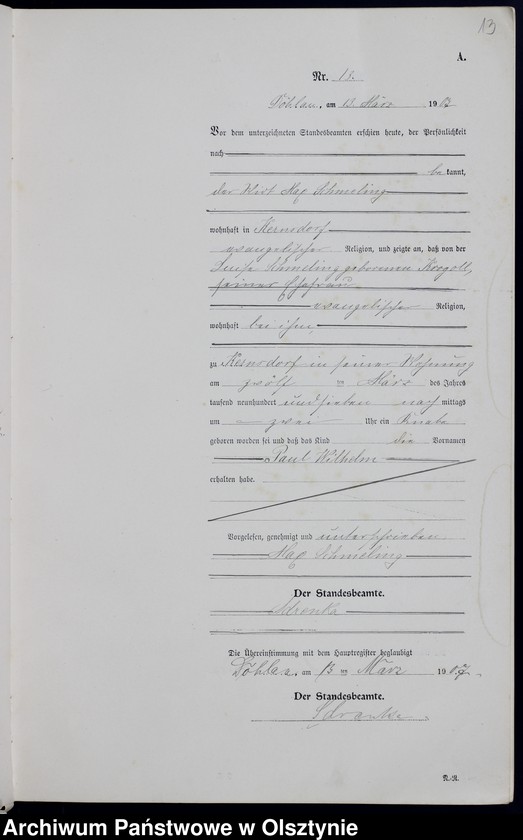 13
A.
Nr. 13.
Döhlau, am 13. März 1907
Vor dem unterzeichneten Standesbeamten erschien heute, der Persönlichkeit
nach
be kannt,
der Wirt Schmeling
wohnhaft in Kernsdorf
evangelischer Religion, und zeigte an, daß von der
Schmeling geborenen
seiner Ehefrau
evangelischer Religion,
wohnhaft bei ihm
zu Kernsdorf in seiner Wohnung
am zwölf ten März des Jahres
tausend neunhundert und sieben nach mittags
um zwei Uhr ein Knabe
geboren worden sei und daß das Kind die Vornamen
Paul Wilhelm
erhalten habe.
Vorgelesen, genehmigt und unterschrieben
Schmeling
Der Standesbeamte.
Die Übereinstimmung mit dem Hauptregister beglaubigt
Döhlau, am 13 ten März 1907.
Der Standesbeamte.
N.-R.
Archiwum Państwowe w Olsztynie